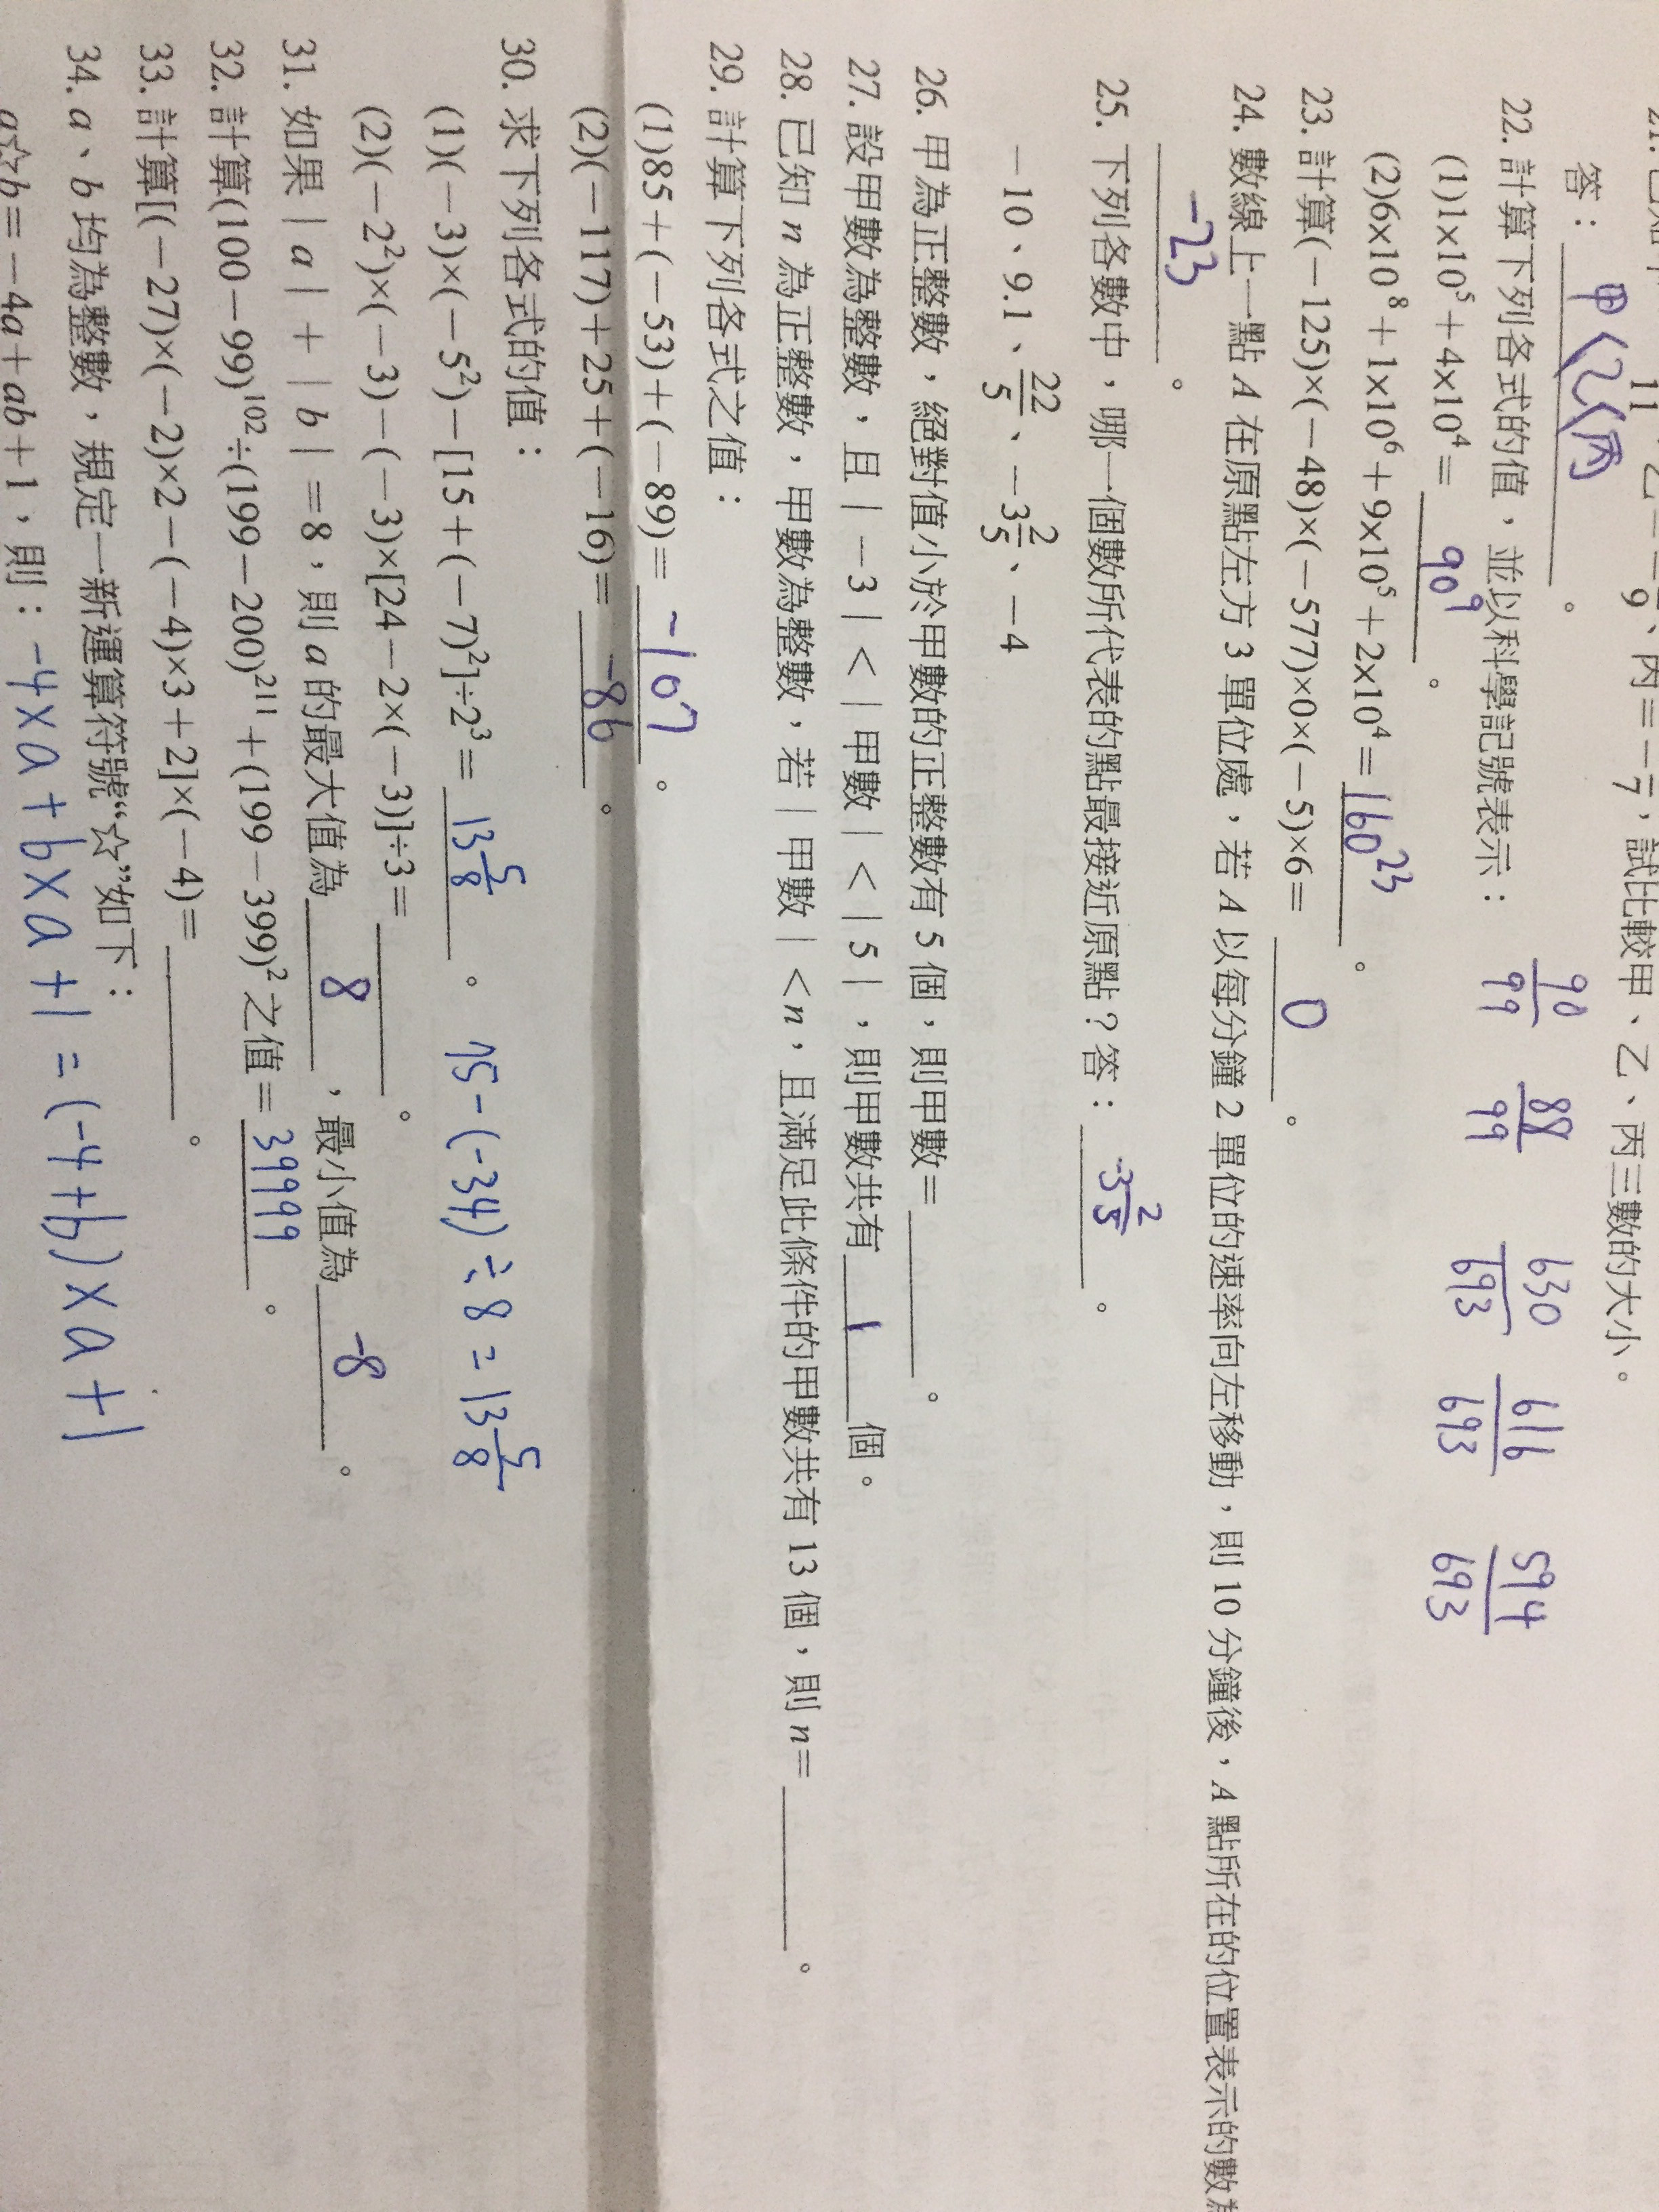 11、乙=-9、丙=-7，試比較甲、乙、丙三數的大小。
答：甲<乙<丙。
90/99 88/99 630/693 616/693 594/693
22. 計算下列各式的值，並以科學記號表示：
(1)1×10⁵+4×10⁴=90⁹。
(2)6×10⁸+1×10⁶+9×10⁵+2×10⁴=160²³。
23. 計算(-125)×(-48)×(-577)×0×(-5)×6=0。
24. 數線上一點 A 在原點左方 3 單位處，若 A 以每分鐘 2 單位的速率向左移動，則 10 分鐘後，A 點所在的位置表示的數為
-23。
25. 下列各數中，哪一個數所代表的點最接近原點？答：-3 2/5。
-10、9.1、22/5、-3 2/5、-4
26. 甲為正整數，絕對值小於甲數的正整數有 5 個，則甲數=。
27. 設甲數為整數，且 |-3|<|甲數|<|5|，則甲數共有 1 個。
28. 已知 n 為正整數，甲數為整數，若 |甲數|<n，且滿足此條件的甲數共有 13 個，則 n=。
29. 計算下列各式之值：
(1)85+(-53)+(-89)=-107。
(2)(-117)+25+(-16)=-86。
30. 求下列各式的值：
(1)(-3)×(-5²)-[15+(-7)²]÷2³=13 5/8。 75-(-34)÷8=13 5/8
(2)(-2²)×(-3)-(-3)×[24-2×(-3)]÷3=。
31. 如果 |a|+|b|=8，則 a 的最大值為 8，最小值為 -8。
32. 計算(100-99)¹⁰²÷(199-200)²¹¹+(199-399)² 之值=39999。
33. 計算[(-27)×(-2)×2-(-4)×3+2]×(-4)=。
34. a、b 均為整數，規定一新運算符號“☆”如下：
a☆b=-4a+ab+1，則： -4×a+b×a+1=(-4+b)×a+1